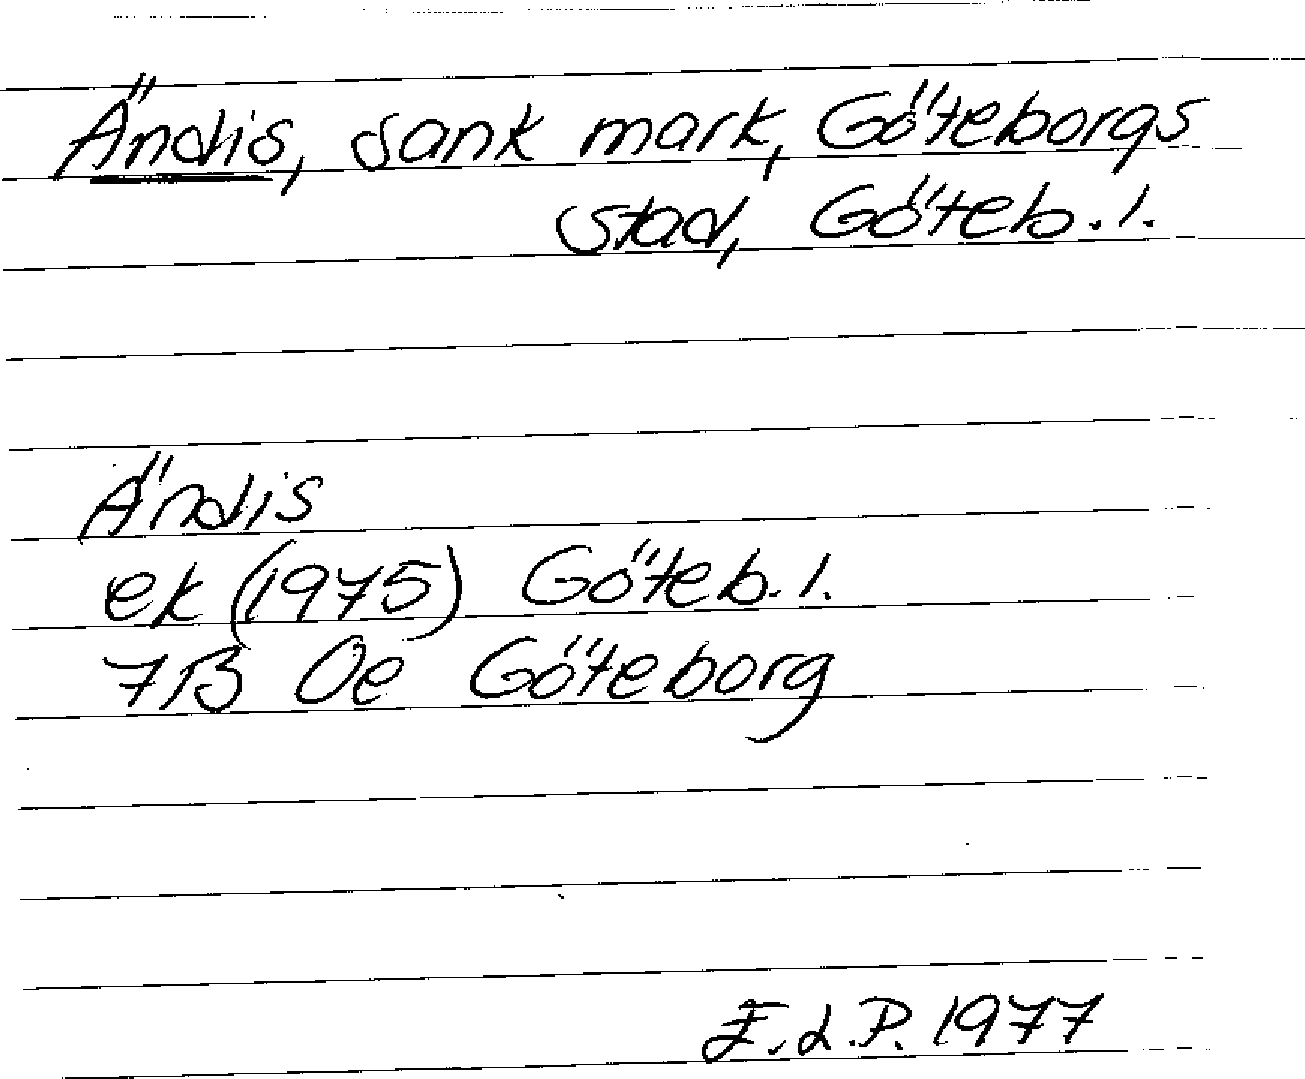 Ändis, sank mark, Göteborgs
stad, Göteb. l.
Ändis
ek (1975) Göteb. l.
7B Oe Göteborg
E. d. P. 1977